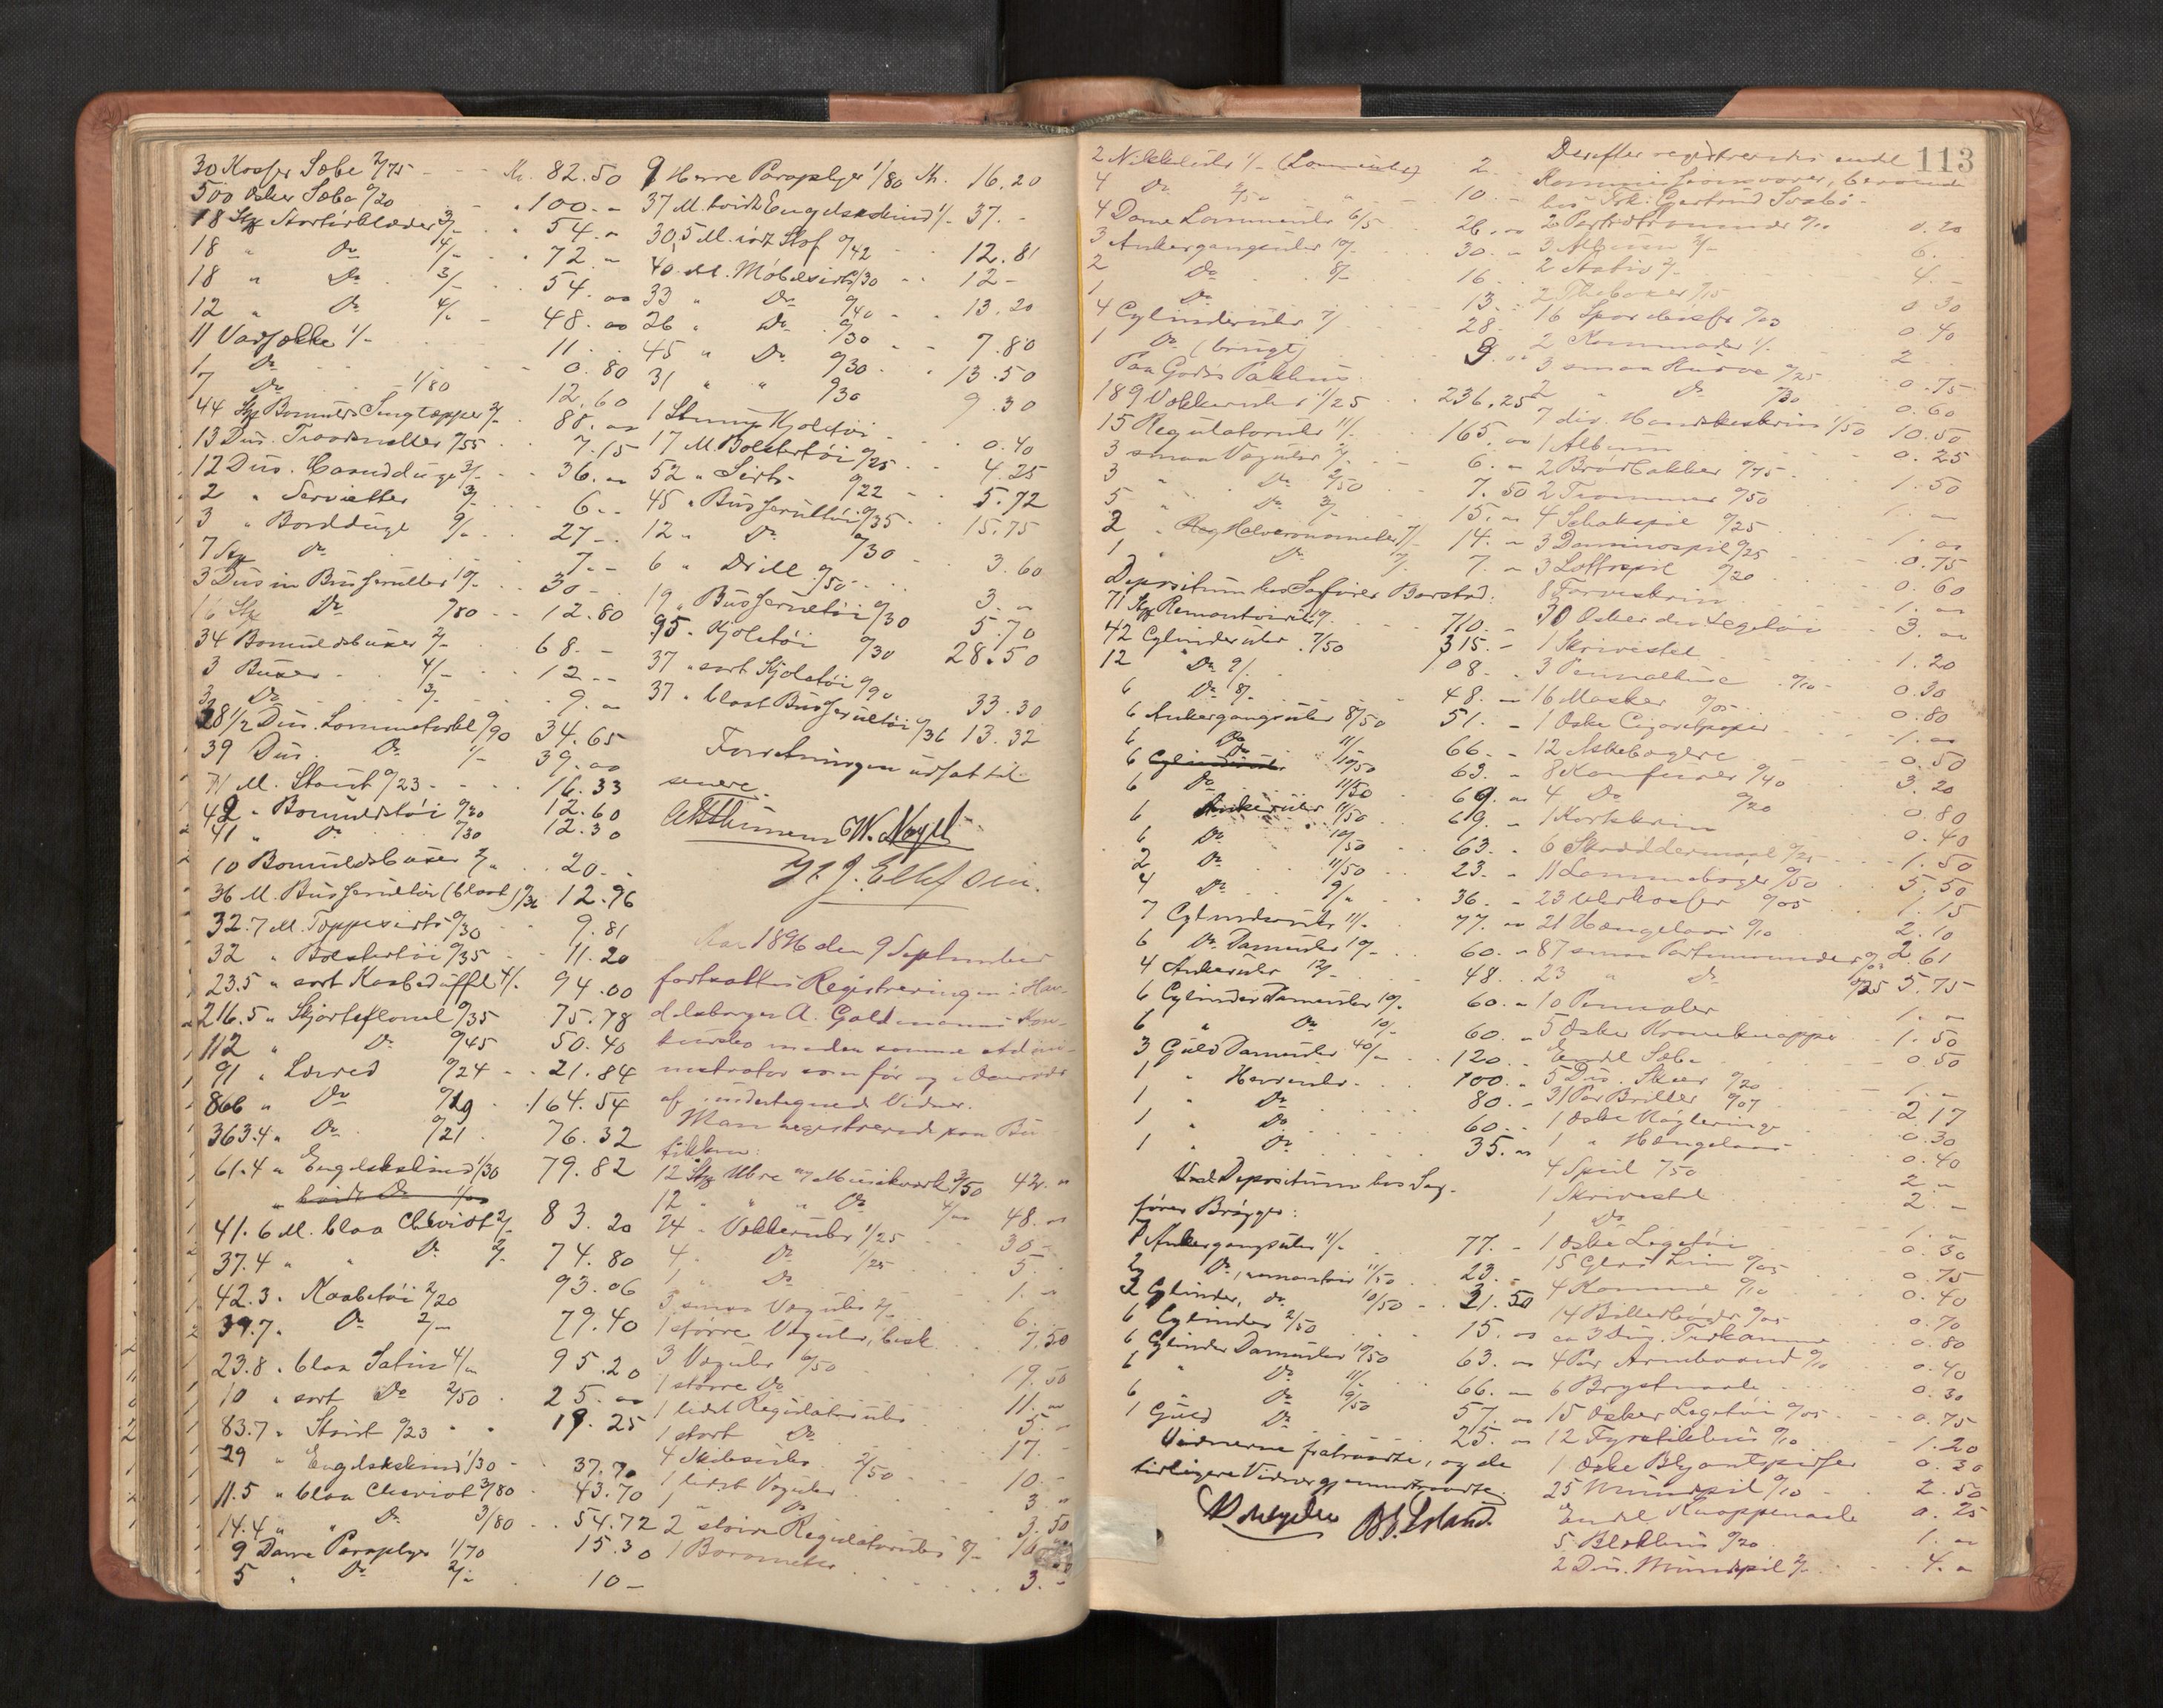 30 Kasser Sæbe 2/75 - - Kr. 82.50
500 Æsker Sæbe 0/20 - 100.-
18 Stk Skortørklæder 3/- 54.-
18 " Do 4/- 72.-
18 " Do 3/- 54.-
12 " Do 4/- 48.-
11 Vadsække 1/- 11.-
1 Do 0.80
7 Do 1/80 12.60
44 Stk Bomulds Sengtæpper 2/- 88.-
13 Dus. Traadsneller /55 7.15
12 Dus. 3/- 36.-
2 " Servietter 3/- 6.-
3 " Bordduge 9/- 27.-
7 Stk Do 7.-
3 Dusin Busseruller 10/- 30.-
16 Stk Do /80 12.80
34 Bomuldsbuxer 2/- 68.-
3 Buxer 4/- 12.-
3 Do 3/- 9.-
38 1/2 Dus. Lommetørkl 0/90 34.65
39 Dus Do 1/- 39.-
71 M. Stout 0/23 16.33
42 " Bomuldstøi 0/30 12.60
41 " Do /30 12.30
10 Bomuldsbuxer 2/- 20.-
36 M. Busserultøi (blaat) 0/36 12.96
32.7 M. Tæppesirts 0/30 9.81
32 " Bolstertøi 0/35 11.20
23.5 " sort Kaabedüffel 4/- 94.00
216.5 " Skjorteflonel 0/35 75.78
112 " Do 0/45 50.40
91 " Lærred 0/24 21.84
866 " Do 0/19 164.54
363.4 " Do 0/21 76.32
61.4 " Engelskskind 1/30 79.82
" hvidt Do
41.6 M. blaa Cheviot 2/- 83.20
37.4 " " Do 2/- 74.80
42.3 " Kaabetøi 2/20 93.06
39.7 " Do 2/- 79.40
23.8 " blaa Satin 4/- 95.20
10 " sort Do 2/50 25.-
83.7 " Stout 0/23 19.25
29 " Engelskskind 1/30 37.70
11.5 " blaa Cheviot 3/80 43.70
14.4 " " Do 3/80 54.72
9 Dame Paraplyer 1/70 15.30
5 " Do 2/- 10-
9 Herre Paraplyer 1/80 Kr. 16.20
37 M. hvidt Engelskskind 1/- 37.-
30,5 M. rødt Stof 0/42 12.81
40 M. Møbelsirts 0/30 12-
33 " Do 0/40 13.20
26 " Do 0/30 7.80
45 " Do 0/30 13.50
31 " " 0/30 9.30
1 Stump Kjoletøi 0.40
17 M. Bolstertøi 0/25 4.25
52 " Sirts 0/22 5.72
45 " Busserultøi 0/35 15.75
12 " Do 0/30 3.60
6 " Drill 0/50 3.-
19 " Busserultøi 0/30 5.70
95 " Kjoletøi 0/30 28.50
37 " sort Kjoletøi 0/90 33.30
37 " blaat Busserultøi 0/36 13.32
Forretningen udsat til
senere.
W. Nagel
Aar 1896 den 9 September
fortsattes Registreringen i Han-
delsborger A. Goldmanns Kon-
kursbo med den samme Admi-
nistrator som før og i Overvær
af undertegnede Vidner.
Man registrerede paa Bu-
tikken:
12 Stk Uhre m/ Musikværk 3/50 42.-
12 " " " Do 4/- 48.-
24 " Vækkeruhr 1/25 30-
4 " Do 1/25 5-
1 " Do 1.-
3 smaa Væguhr 2/- 6.-
1 større Væguhr, besk. 7,50
3 Væguhr 6/50 19.50
1 større Do 11.-
1 lidet Regulatoruhr 5.-
1 stort Do 17.-
4 Skibsuhr 2/50 10.-
1 lidet Væguhr 3.-
1 " Do 3.50
2 større Regulatoruhr 8/-
1 Barometer 3.-
113
2 Nikkeluhr 1/- (Lommeuhr) 2.
4 Do 2/50 10.-
4 Dame Lommeuhr 6/5 26.-
3 Ankergangsuhr 10/- 30.-
2 Do 8/- 16.
1 Do 13.
4 Cylinderuhr 7/ 28.
1 Do (brugt) 9.-
Paa Godes Pakhus:
189 Vækkeruhr 1/25 236.25
15 Regulatoruhr 11/- 165.-
3 smaa Væguhr 2/- 6.-
3 " Do 2/50 7.50
5 " Do 3/- 15.-
2 Halvcronometer 7/- 14.-
1 " Do 7/- 7.-
Depositum hos Sagfører Barstad:
71 Stk Remontoiruhr 10/- 710.-
42 Cylinderuhr 7/50 315.-
12 " Do 9/- 108.-
6 Do 8/- 48.-
6 Ankergangsuhr 8/50 51.-
6 Do 11/- 66.-
6 Cylinderuhr Do 10/50 63.-
6 Do 11/50 69.-
6 Ankeruhr 11/50 69.-
6 Do 10/50 63.-
2 Do 11/50 23.-
4 Do 9/- 36.-
7 Cylinderuhr 11/- 77.-
6 Do Dameuhr 10/- 60.-
4 Ankeruhr 12/- 48.-
6 Cylinder Dameuhr 10/- 60.-
6 " Do 10/- 60.-
3 Guld Dameuhr 40/- 120.-
1 " Herreuhr 100.-
1 " Do 80.-
1 " Do 60.-
1 " Do 35.-
Ved Depositum hos Sag-
fører Brøgger:
7 Ankergangsuhr 11/- 77.-
2 Do, remontoir 11/50 23.-
3 Cylinder, do. 10/50 31.50
6 Cylinder 2/50 15.-
6 Cylinder Dameuhr 10/50 63.-
6 " Do 11/- 66.-
6 Do 9/50 57.-
1 Guld Do 25.-
Vidnerne fratraadte, og de
tidligere Vidner gjenindtraadte.
Derefter registreredes endel
Kommissionsvarer, beroende
hos Frk. Gjertrud Svabø.
2 Portrætrammer 0/10 0.20
3 Album 2/- 6.-
2 Stativ 2/- 4.-
2 Thebaxer 0/15 0.30
16 Sparebøsser 0/03 0.40
2 Kommoder 1/- 2
3 smaa Kurve 0/25 0.75
2 " Do /30 0.60
7 div. Handskeskrin 1/50 10.50
1 Album 0.25
2 Brødbakker 0/75 1.50
2 Trommer 0/50 1.-
4 Schakspil 0/25 1.-
3 Dominospil 0/25 0.75
3 Lottospil 0/20 0.60
8 Farveskrin 1.-
30 Æsker div Legetøi 3.-
1 Skrivestel 1.20
3 Pennalhuse 0/10 0.30
16 Masker 0/05 0.80
1 Æske Cigaretpapir 1.-
12 Askebægere 0.50
8 Konfurer 0/40 3.20
4 Do 0/20 0.80
1 Kortskrin 0.40
6 Skræddermaal 0/25 1.50
11 Lommebøger 0/50 5.50
23 0/05 1.15
21 Hængelaas 0/10 2.10
87 smaa Portemonnæer 0/03 2.61
23 " Do 0/25 5.75
10 Pennaler 1.-
5 Æsker Kraveknapper 1.50
Endel Sæbe 0.50
5 Dus. Skeer 0/20 1.-
31 Par Briller 0/07 2.17
1 Æske Nøgleringe 0.30
1 " Hængelaas 0.40
4 Speil /50 2.-
1 Skrivestel 2.-
1 Do 1.-
1 Æske Legetøi 0.30
15 Glas Liim 0/05 0.75
4 Kamme 0/10 0.40
14 Billedbøger 0/05 0.70
ca 3 Dus. 0.80
4 Par Armbaand 0/10 0.40
6 Brystnaale 0.30
15 Æsker Legetøi 0/05 0.75
12 Fyrstikhus 0/10 1.20
1 Æske Blyantspidser 0.30
25 Mundspil 0/10 2.50
Endel Knappenaale 0.25
5 Blækhus 0/20 1.-
2 Dus. Mundspil 2/- 4.-